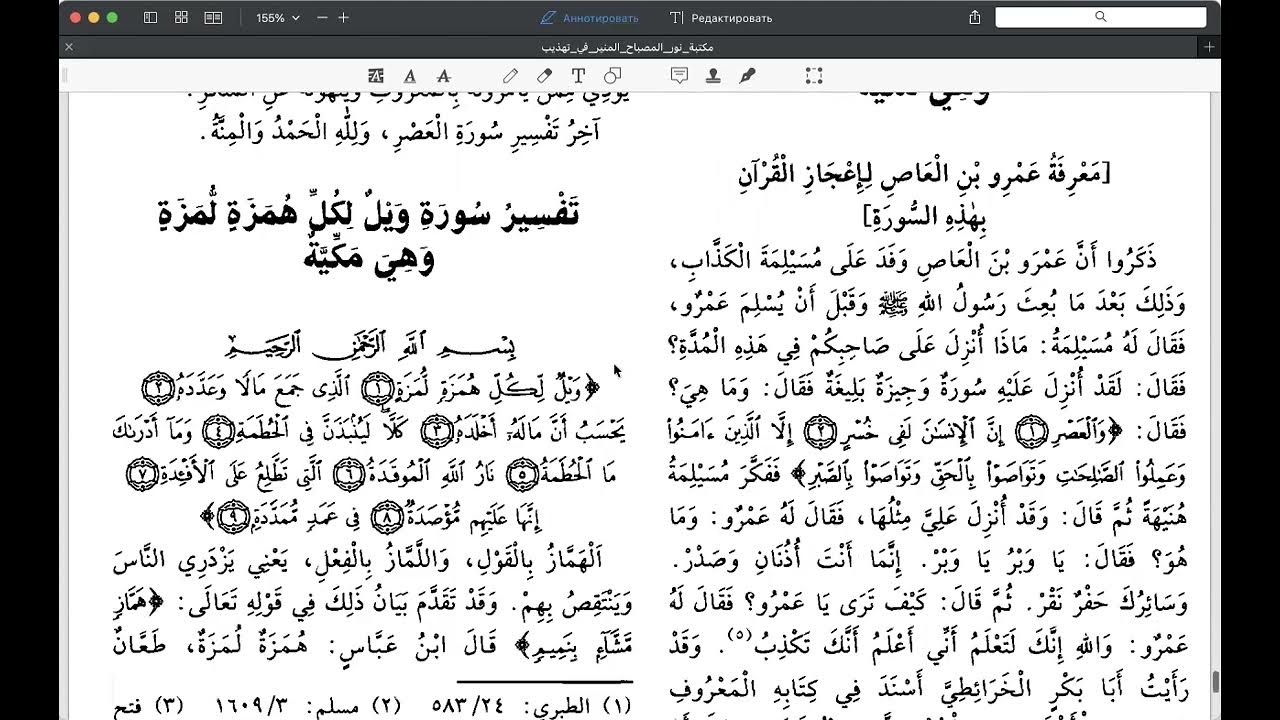 155%
Аннотировать
Редактировать
مكتبة_نور_المصباح_المنير_في_تهذيب
[مَعْرِفَةُ عَمْرِو بْنِ الْعَاصِ لِإِعْجَازِ الْقُرْآنِ
بِهٰذِهِ السُّورَةِ]
ذَكَرُوا أَنَّ عَمْرَو بْنَ الْعَاصِ وَفَدَ عَلَى مُسَيْلِمَةَ الْكَذَّابِ،
وَذَلِكَ بَعْدَ مَا بُعِثَ رَسُولُ اللهِ ﷺ وَقَبْلَ أَنْ يُسْلِمَ عَمْرٌو،
فَقَالَ لَهُ مُسَيْلِمَةُ: مَاذَا أُنْزِلَ عَلَى صَاحِبِكُمْ فِي هَذِهِ الْمُدَّةِ؟
فَقَالَ: لَقَدْ أُنْزِلَ عَلَيْهِ سُورَةٌ وَجِيزَةٌ بَلِيغَةٌ فَقَالَ: وَمَا هِيَ؟
فَقَالَ: ﴿وَٱلْعَصْرِ ۝١ إِنَّ ٱلْإِنسَـٰنَ لَفِى خُسْرٍ ۝٢ إِلَّا ٱلَّذِينَ ءَامَنُوا۟
وَعَمِلُوا۟ ٱلصَّـٰلِحَـٰتِ وَتَوَاصَوْا۟ بِٱلْحَقِّ وَتَوَاصَوْا۟ بِٱلصَّبْرِ﴾ فَفَكَّرَ مُسَيْلِمَةُ
هُنَيْهَةً ثُمَّ قَالَ: وَقَدْ أُنْزِلَ عَلَيَّ مِثْلُهَا، فَقَالَ لَهُ عَمْرٌو: وَمَا
هُوَ؟ فَقَالَ: يَا وَبْرُ يَا وَبْرُ. إِنَّمَا أَنْتَ أُذُنَانِ وَصَدْرٌ.
وَسَائِرُكَ حَفْرٌ نَقْرٌ. ثُمَّ قَالَ: كَيْفَ تَرَى يَا عَمْرُو؟ فَقَالَ لَهُ
عَمْرٌو: وَاللهِ إِنَّكَ لَتَعْلَمُ أَنِّي أَعْلَمُ أَنَّكَ تَكْذِبُ(٥). وَقَدْ
رَأَيْتُ أَبَا بَكْرٍ الْخَرَائِطِيَّ أَسْنَدَ فِي كِتَابِهِ الْمَعْرُوفِ
آخِرُ تَفْسِيرِ سُورَةِ الْعَصْرِ، وَلِلّٰهِ الْحَمْدُ وَالْمِنَّةُ.
تَفْسِيرُ سُورَةِ وَيْلٌ لِكُلِّ هُمَزَةٍ لُّمَزَةٍ
وَهِيَ مَكِّيَّةٌ
بِسْمِ ٱللَّهِ ٱلرَّحْمَـٰنِ ٱلرَّحِيمِ
﴿وَيْلٌ لِّكُلِّ هُمَزَةٍ لُّمَزَةٍ ۝١ ٱلَّذِى جَمَعَ مَالًا وَعَدَّدَهُۥ ۝٢
يَحْسَبُ أَنَّ مَالَهُۥٓ أَخْلَدَهُۥ ۝٣ كَلَّا ۖ لَيُنۢبَذَنَّ فِى ٱلْحُطَمَةِ ۝٤ وَمَآ أَدْرَىٰكَ
مَا ٱلْحُطَمَةُ ۝٥ نَارُ ٱللَّهِ ٱلْمُوقَدَةُ ۝٦ ٱلَّتِى تَطَّلِعُ عَلَى ٱلْأَفْـِٔدَةِ ۝٧
إِنَّهَا عَلَيْهِم مُّؤْصَدَةٌ ۝٨ فِى عَمَدٍ مُّمَدَّدَةٍۭ ۝٩﴾
اَلْهَمَّازُ بِالْقَوْلِ، وَاللَّمَّازُ بِالْفِعْلِ، يَعْنِي يَزْدَرِي النَّاسَ
وَيَنْتَقِصُ بِهِمْ. وَقَدْ تَقَدَّمَ بَيَانُ ذَلِكَ فِي قَوْلِهِ تَعَالَى: ﴿هَمَّازٍ
مَّشَّآءٍ بِنَمِيمٍ﴾ قَالَ ابْنُ عَبَّاسٍ: هُمَزَةٌ لُمَزَةٌ، طَعَّانٌ
(١) الطبري: ٥٨٣/٢٤ (٢) مسلم: ١٦٠٩/٣ (٣) فتح